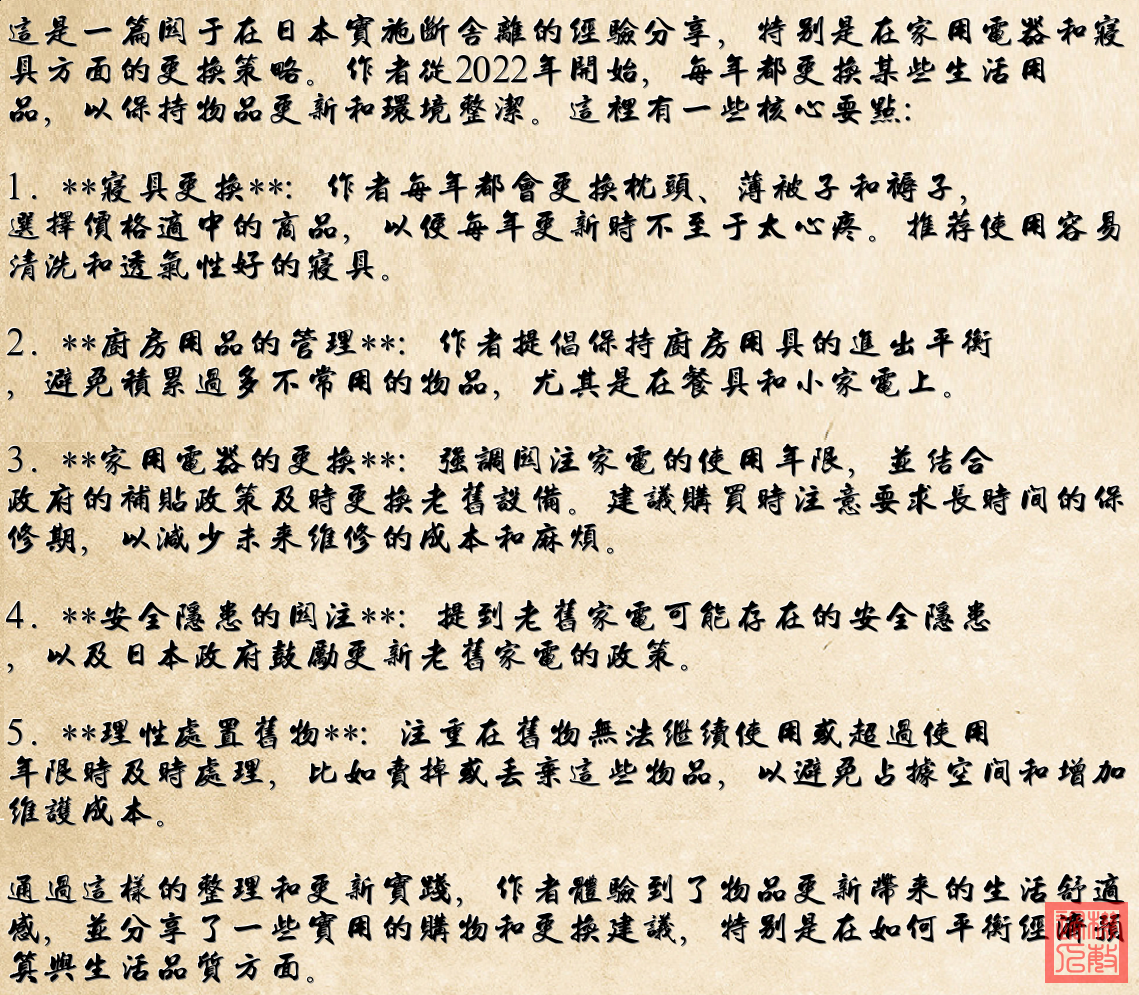 這是一篇関于在日本實施斷舍離的經驗分享，特別是在家用電器和寢
具方面的更換策略。作者從2022年開始，每年都更換某些生活用
品，以保持物品更新和環境整潔。這裡有一些核心要點：
1. **寢具更換**：作者每年都會更換枕頭、薄被子和褥子，
選擇價格適中的商品，以便每年更新時不至于太心疼。推荐使用容易
清洗和透氣性好的寢具。
2. **廚房用品的管理**：作者提倡保持廚房用具的進出平衡
，避免積累過多不常用的物品，尤其是在餐具和小家電上。
3. **家用電器的更換**：強調関注家電的使用年限，並结合
政府的補貼政策及時更換老舊設備。建議購買時注意要求長時间的保
修期，以減少未来維修的成本和麻煩。
4. **安全隱患的関注**：提到老舊家電可能存在的安全隱患
，以及日本政府鼓勵更新老舊家電的政策。
5. **理性處置舊物**：注重在舊物無法继续使用或超過使用
年限時及時處理，比如賣掉或丢棄這些物品，以避免占據空间和增加
維護成本。
通過這樣的整理和更新實踐，作者體驗到了物品更新帶来的生活舒適
感，並分享了一些實用的購物和更換建議，特別是在如何平衡經濟預
算與生活品質方面。